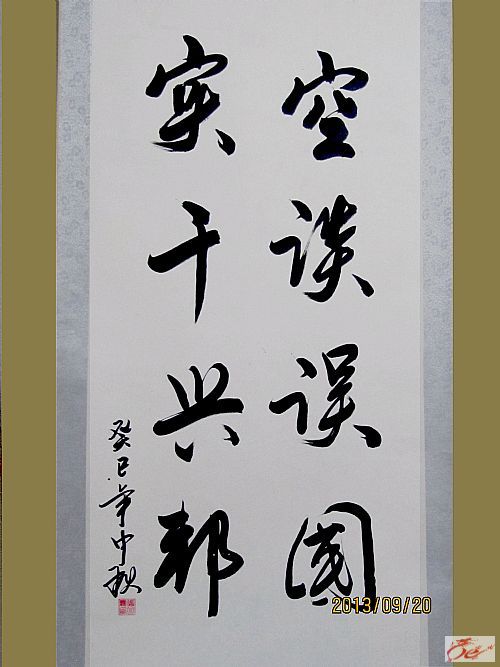 空谈误国
实干兴邦
癸巳年中秋
2013/09/20